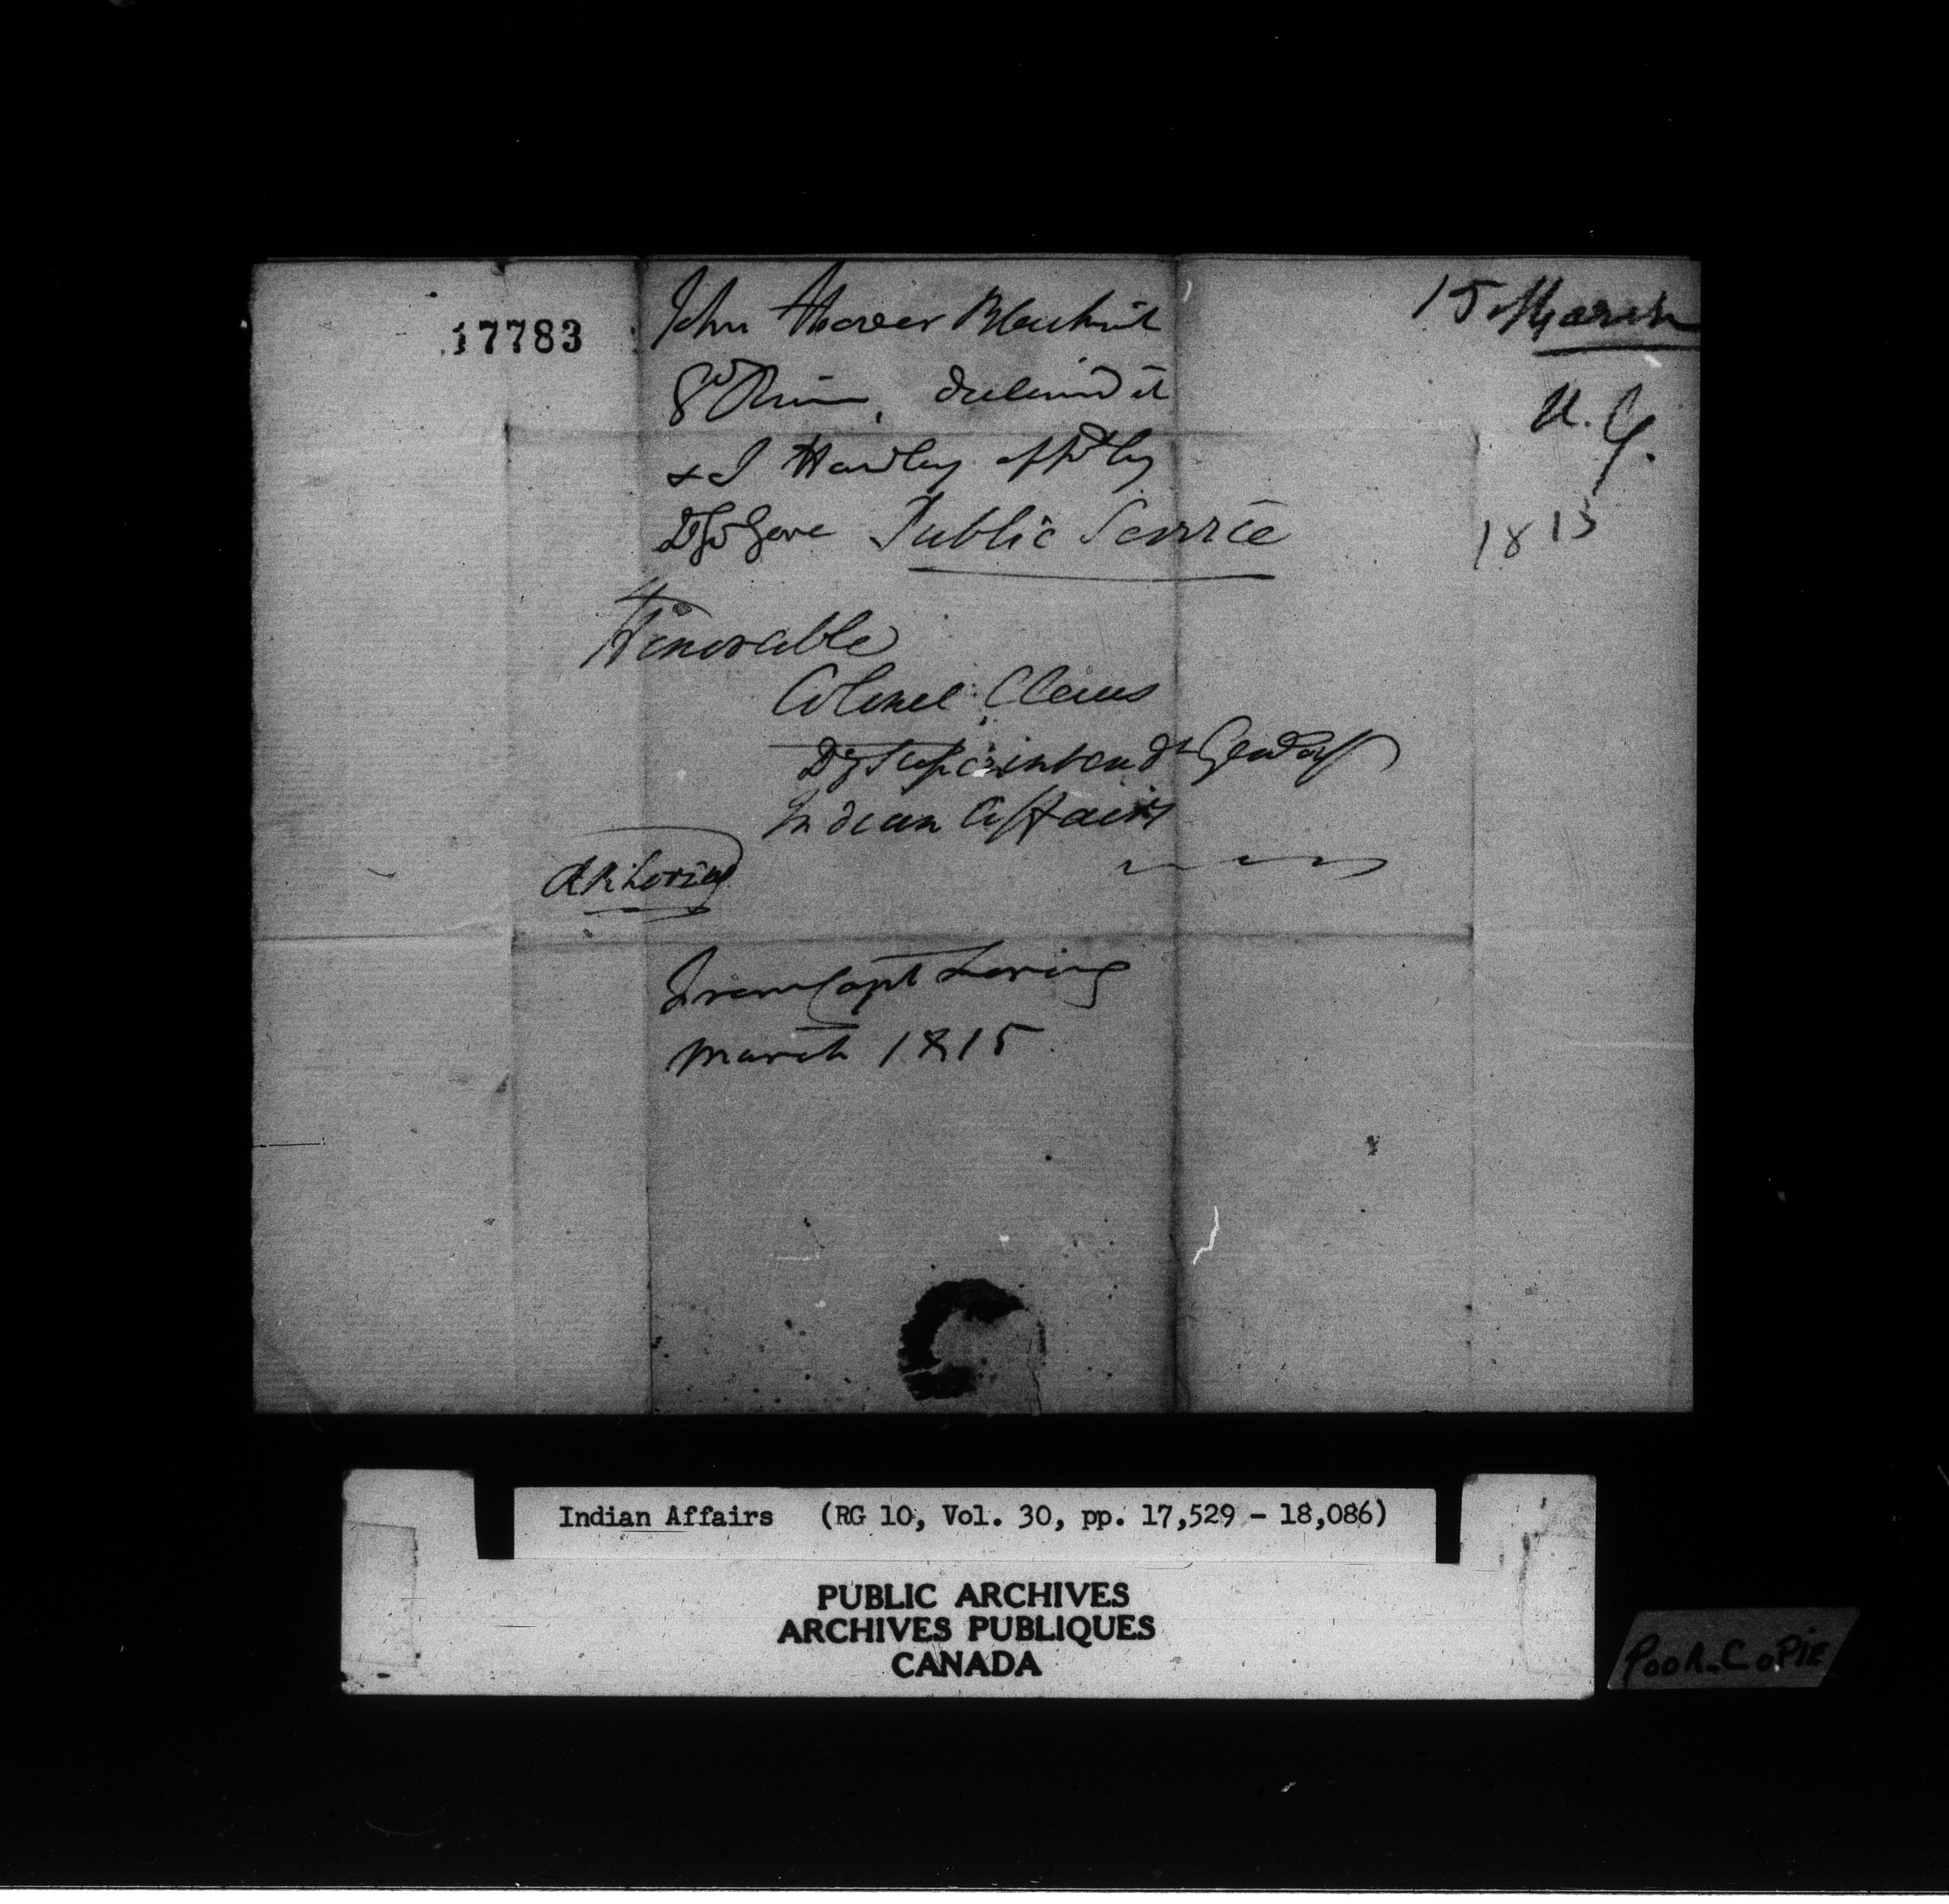 17783
John Blacksmith
15 March
Grd River, declined it
U. C.
& J Hardley
1815
Public Service
Honorable
Colonel Claus
Dy Superintendt Genl of
Indian Affairs
RR Loring
From Capt Loring
March 1815
Indian Affairs (RG 10, Vol. 30, pp. 17,529 - 18,086)
PUBLIC ARCHIVES
ARCHIVES PUBLIQUES
CANADA
Poor Copie